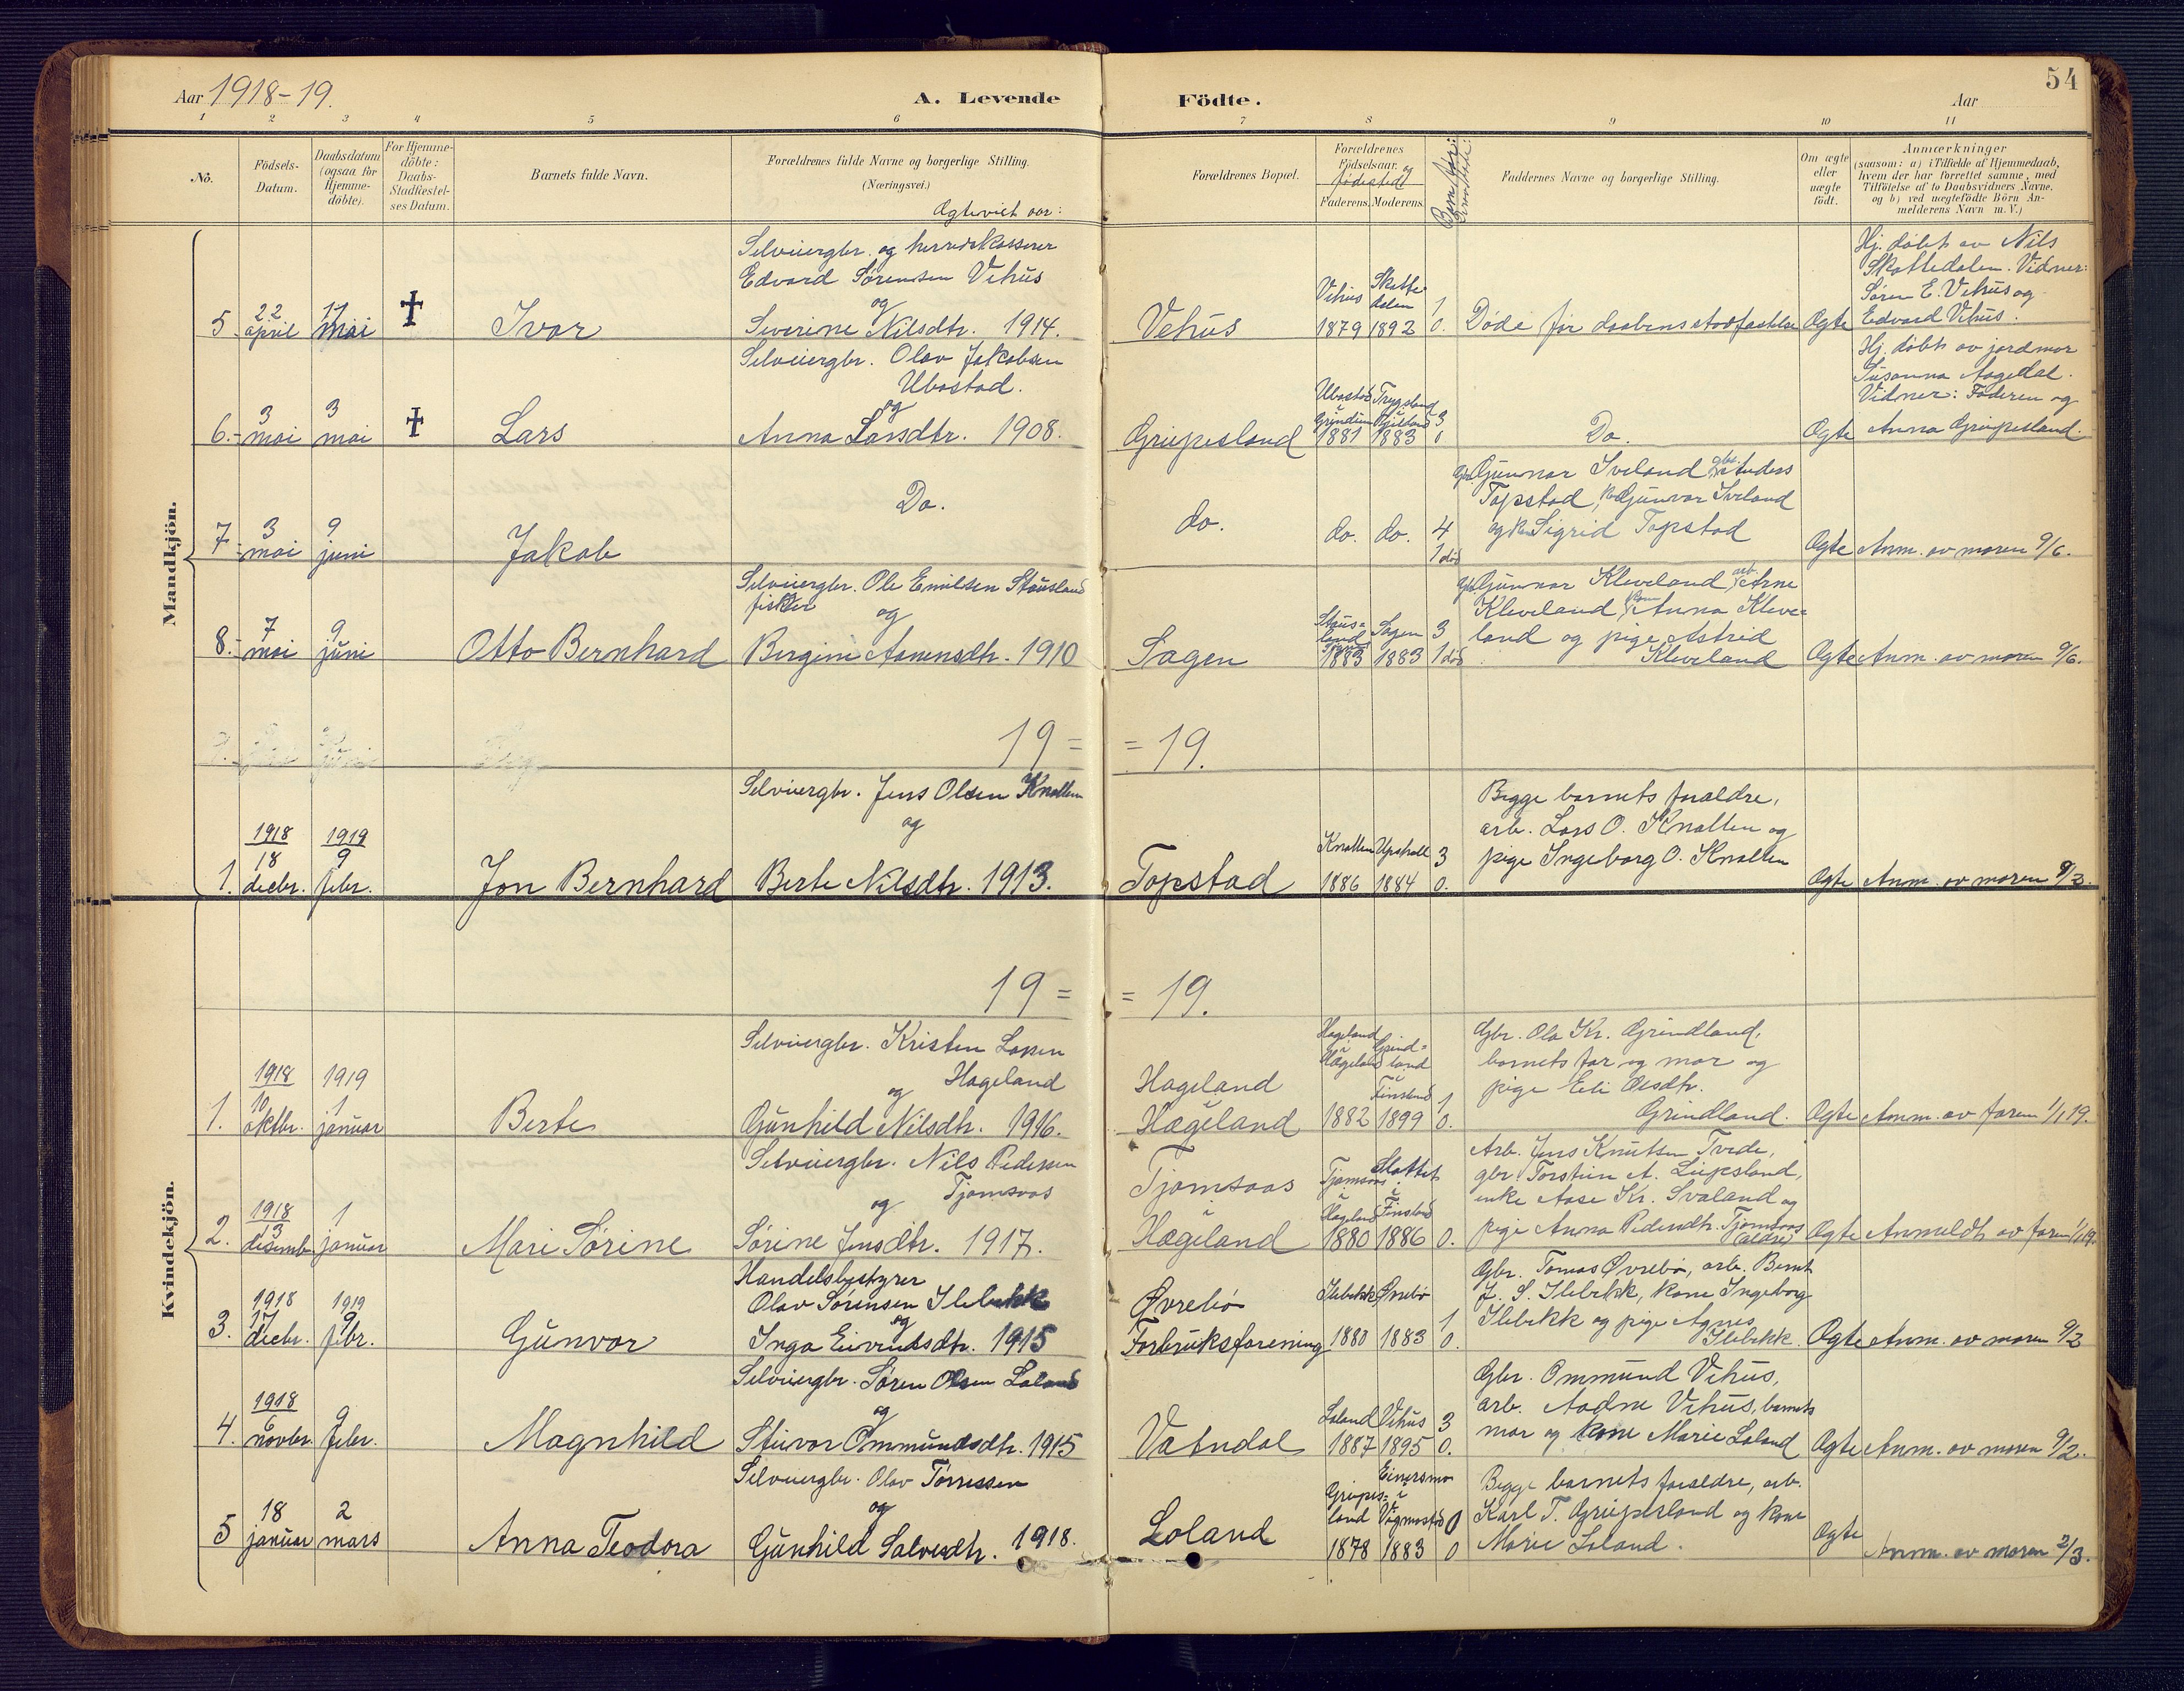 54
Aar 1918-19.
A. Levende Födte.
Aar
1 2 3 4 5 6 7 8 9 10 11
No.
Födsels-
Datum.
Daabsdatum
(ogsaa for
Hjemme-
döbte).
For Hjemme-
döbte:
Daabs-
Stadfæstel-
ses Datum.
Barnets fulde Navn.
Forældrenes fulde Navne og borgerlige Stilling.
(Næringsvei.)
Ægteviet aar:
Forældrenes Bopæl.
Forældrenes
Födselsaar. og
fødested
Faderens. Moderens.
Faddernes Navne og borgerlige Stilling.
Om ægte
eller
uægte
født.
Anmærkninger
(saasom: a) i Tilfælde af Hjemmedaab,
hvem der har forrettet samme, med
Tilföielse af to Daabsvidners Navne.
og b) ved uægtefödte Börn An-
melderens Navn m. V.)
Mandkjön.
Selveiergbr. og herredskasserer
Edvard Sørensen Vehus
og
Severine Nilsdtr. 1914.
5. 22 april 17 mai † Ivar
Vehus
Vehus 1879
Skatte-
dalen 1892
1
0.
Døde før daabens stadfæstelse
Ægte
Hj. døbt av Nils
Skattedalen. Vidner:
Søren E. Vehus og
Edvard Vehus.
Selveiergbr. Olav Jakobsen
Ubostad.
og
Anna Larsdtr. 1908.
6. 3 mai 3 mai † Lars
Greipesland
Ubostad
i
Grindum
1881
Trygsland
i
Bjelland
1883
3
Do.
Ægte
Hj. døbt av jordmor
Susanna Aagedal.
Vidner: Faderen og
Anna Greipesland.
7. 3 mai 9 juni Jakob
Do.
do.
do. do. 4
1 død
Gbr. Gunnar Iveland, gbr. Anders
Topstad, k. Gunvor Iveland
og k. Sigrid Topstad
Ægte Anm. av moren 9/6.
Selveiergbr. Ole Emilsen Stausland
fisker og
Bergine Aanensdtr. 1910
8. 7 mai 9 juni Otto Bernhard
Sagen
Staus-
land
1883
Sagen
1883
3
1 død
Gbr. Gunnar Kleveland, arb. Arne
Kleveland, kone Anna Kleve-
land og pige Astrid
Kleveland
Ægte Anm. av moren 9/6.
19 = = 19.
Selveiergbr. Jens Olsen Knallen
og
Berte Nilsdtr. 1913.
1. 1918 18 decbr. 1919 9 febr. Jon Bernhard
Topstad
Knallen 1886
Upstall 1884
3
0.
Begge barnets forældre,
arb. Lars O. Knallen og
pige Ingeborg O. Knallen
Ægte Anm. av moren 9/3.
Kvindekjön.
19 = = 19.
Selveiergbr. Kristen Larsen
Hageland
og
Gunhild Nilsdtr. 1916.
1. 1918 10 oktbr. 1919 1 januar Berte
Hageland
i
Hægeland
Hageland
i
Hægeland
1882
Grind-
land
i
Finsland
1899
1
0.
Gbr. Ola Kr. Grindland,
barnets far og mor og
pige Eli Olsdtr.
Grindland.
Ægte Anm. av faren 1/1 19.
Selveiergbr. Nils Pedersen
Tjomsaas
og
Sørine Jensdtr. 1917.
2. 1918 3 desemb. 1 januar Mari Sørine
Tjomsaas
i
Hægeland
Tjomsaas
i
Hægeland
1880
Slattet
i
Finsland
1886
0.
Arb. Jens Knutsen Tvede,
gbr. Torstein A. Liepsland,
enke Aase Kr. Svaland og
pige Anna Pedersdtr. Tjomsaas
(ældre)
Ægte Anmeldt av faren 1/1 19.
Handelsbestyrer
Olav Sørensen Ilebekk
og
Inga Eivindsdtr. 1915
3. 1918 17 decbr. 1919 9 febr. Gunvor
Øvrebø
Forbruksforening
Ilebekk 1880
Øvrebø 1883
1
0.
Gbr. Tomas Øvrebø, arb. Bernt
J. S. Ilebekk, kone Ingeborg
Ilebekk og pige Agnes
Ilebekk.
Ægte Anm. av moren 9/2
Selveiergbr. Søren Olsen Loland
og
Stievor Ommundsdtr. 1915
4. 1918 6 novbr. 9 febr. Magnhild
Vatndal
Loland 1887
Vehus 1895
3
0.
Gbr. Ommund Vehus,
arb. Aadne Vehus, barnets
mor og kone Marie Loland
Ægte Anm. av moren 9/2.
Selveiergbr. Olav Tørressen
og
Gunhild Salvesdtr. 1918.
5 18 januar 2 mars Anna Teodora
Loland
Greipes-
land
1878
Einersmo
i
Vigmostad
1883
0
0
Begge barnets forældre, arb.
Karl T. Greipesland og kone
Marie Loland.
Ægte
Anm. av moren 2/3.